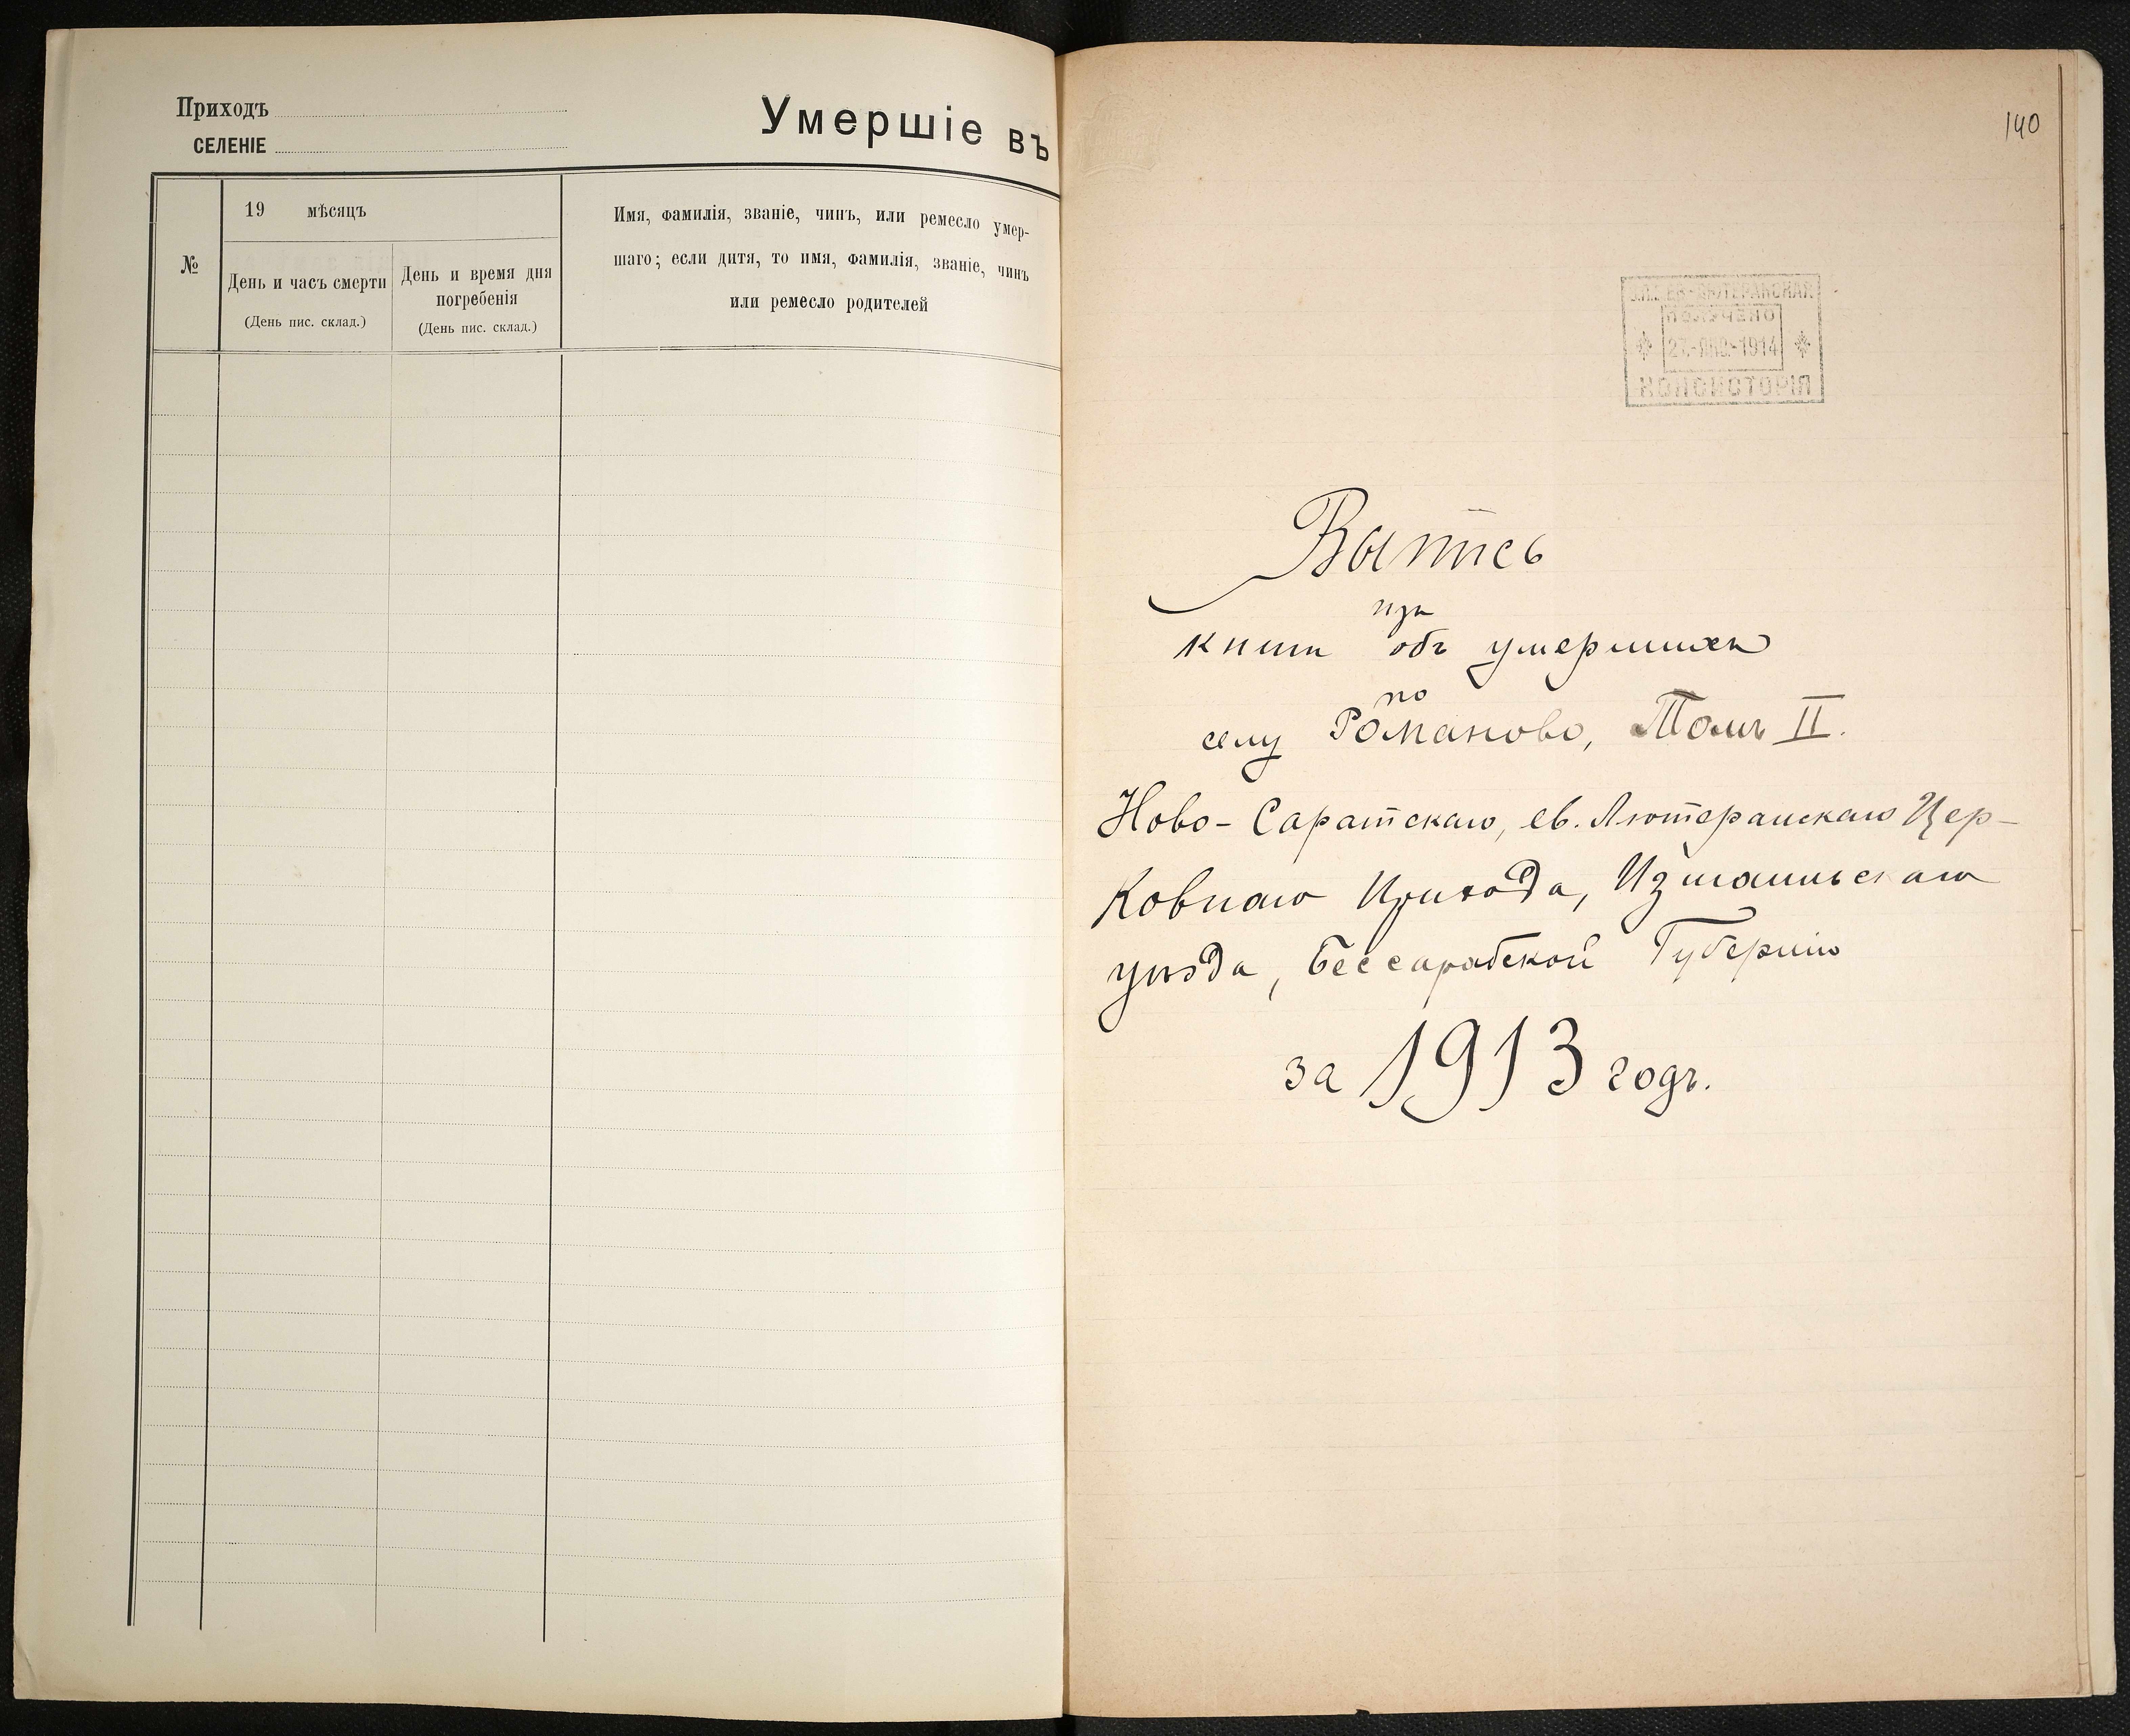 Приходъ
СЕЛЕНІЕ
Умершіе въ
№
19 мѣсяцъ
День и часъ смерти
(День пис. склад.)
День и время дня
погребенія
(День пис. склад.)
Имя, фамилія, званіе, чинъ, или ремесло умер-
шаго; если дитя, то имя, фамилія, званіе, чинъ
или ремесло родителей
140
ЛЮТЕРАНСКАЯ
ПОЛУЧЕНО
1914
КОНСИСТОРІЯ
Выпись
изъ
книги объ умершихъ
по
селу Романово, Томъ II.
Ново-Саратскаго, ев. Лютеранскаго Цер-
ковнаго Прихода, Измаильскаго
уѣзда, Бессарабской Губерніи
за 1913 годъ.